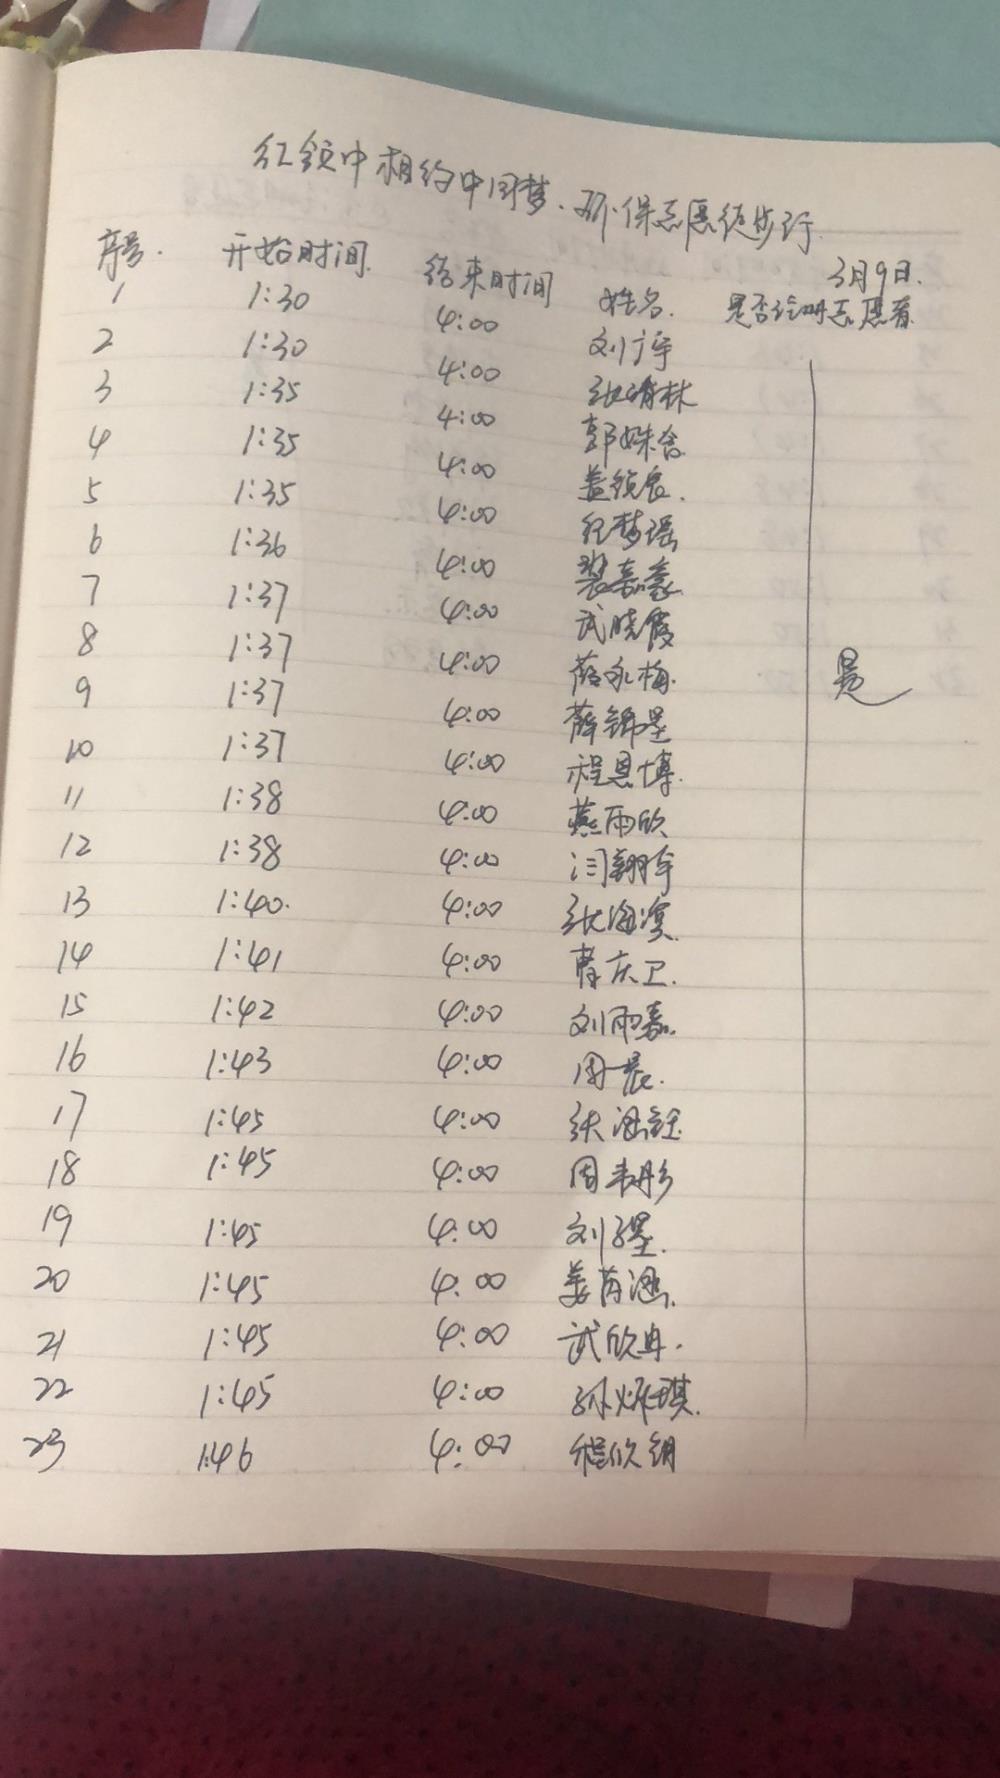 红领巾相约中国梦、环保志愿徒步行
3月9日.
序号. 开始时间 结束时间 姓名. 是否注册志愿者
1 1:30 4:00 刘宇
2 1:30 4:00 张靖林
3 1:35 4:00 郭姝含
4 1:35 4:00
5 1:35 4:00 程梦瑶
6 1:36 4:00 裴嘉豪
7 1:37 4:00 武晓霞
8 1:37 4:00 薛永梅 是
9 1:37 4:00 薛锦墨
10 1:37 4:00 程恩博
11 1:38 4:00 燕雨欣
12 1:38 4:00 闫翱宇
13 1:40 4:00 张海滨
14 1:41 4:00 曹庆卫
15 1:42 4:00 刘雨嘉
16 1:43 4:00 周晨
17 1:45 4:00 张涵钰
18 1:45 4:00
19 1:45 4:00 刘子墨
20 1:45 4:00 姜芮涵
21 1:45 4:00 武欣冉
22 1:45 4:00 孙炜琪
23 1:46 4:00 程欣钥